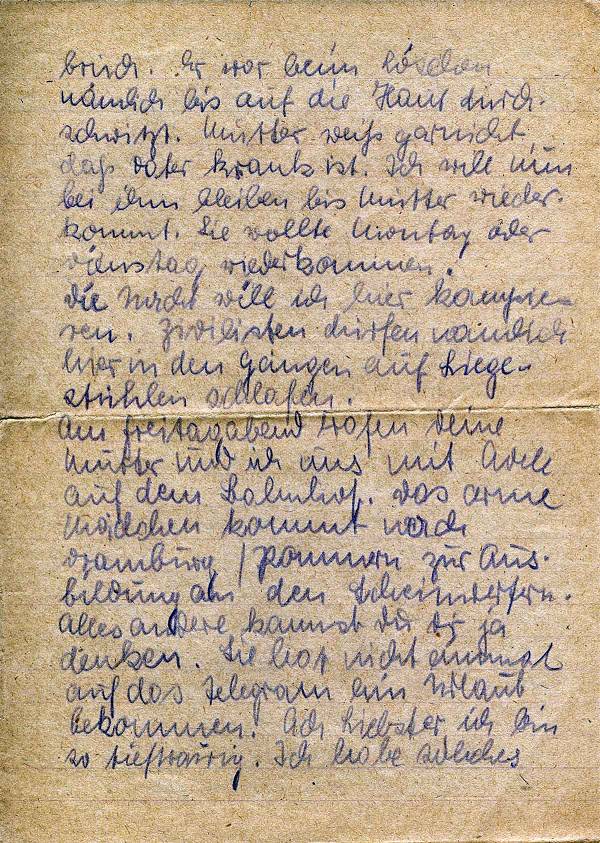 bruch. Er war beim Löschen
nämlich bis auf die Haut durch-
schwitzt. Mutter weiß garnicht
daß Vater krank ist. Ich will nun
bei ihm bleiben bis Mutter wieder-
kommt. Sie wollte Montag oder
Dienstag wiederkommen.
Die Nacht will ich hier kampie-
ren. Zivilisten dürfen nämlich
hier in den Gängen auf Liege-
stühlen schlafen.
Am Freitagabend trafen deine
Mutter und ich uns mit Adele
auf dem Bahnhof. Das arme
Mädchen kommt nach
Dramburg / Pommern zur Aus-
bildung an den Scheinwerfern.
Alles andere kannst du dir ja
denken. Sie hat nicht einmal
auf das Telegram ein Urlaub
bekommen. Ach Liebster ich bin
so tieftraurig. Ich habe solches